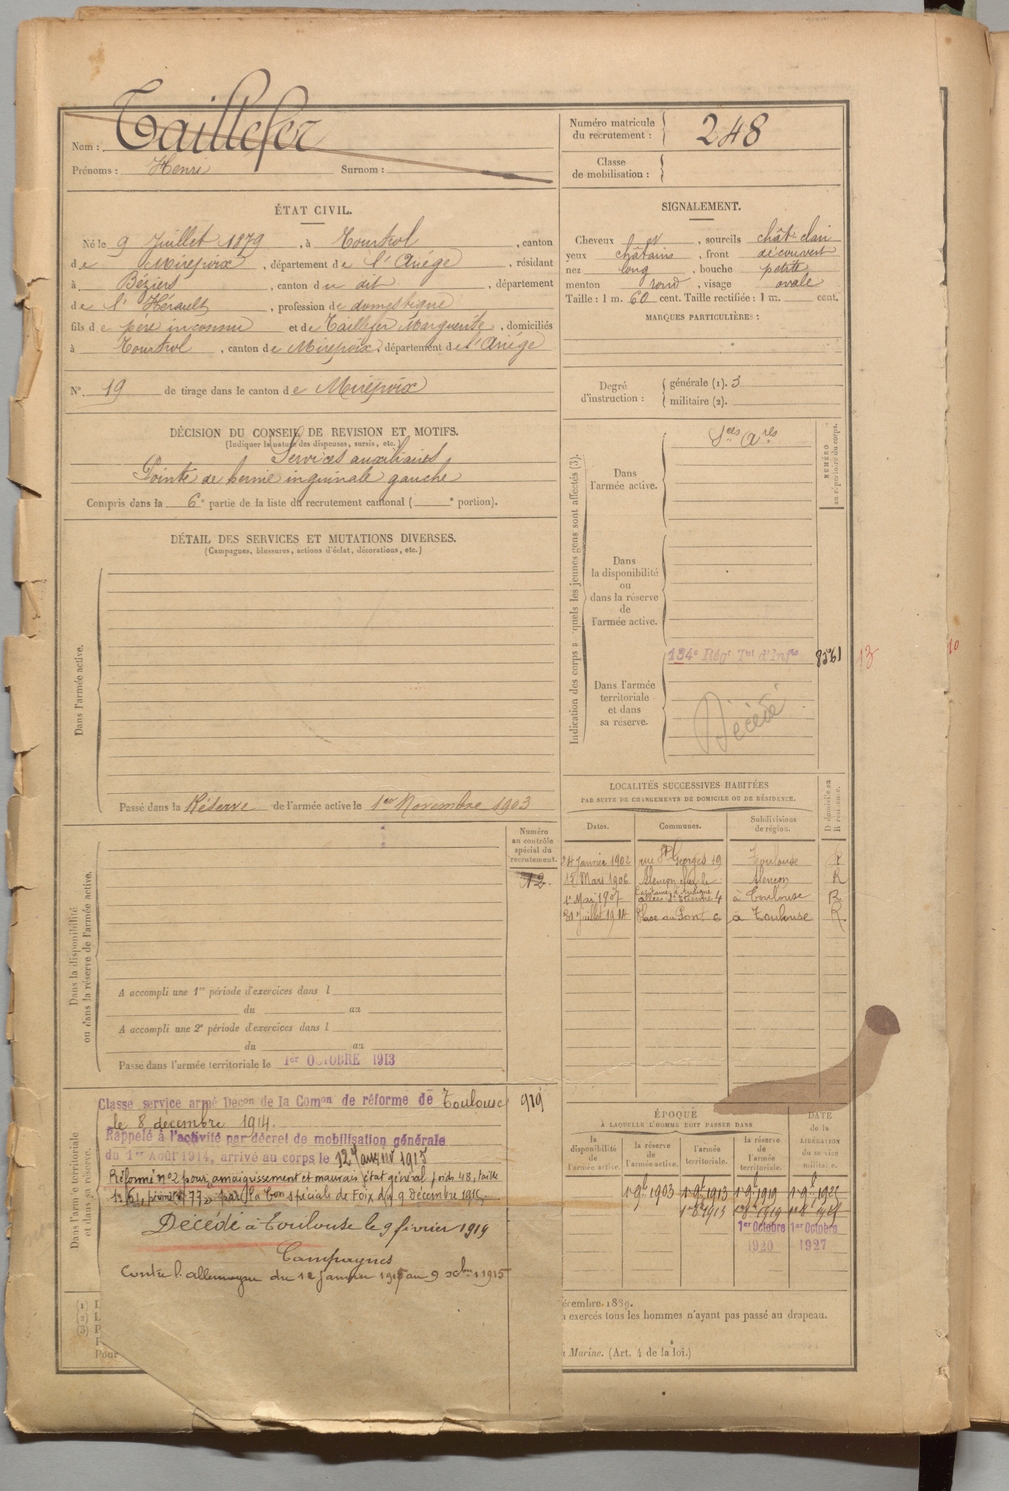 Nom : Taillefer
Prénoms : Henri Surnom :
Numéro matricule du recrutement : 248
Classe de mobilisation :
ÉTAT CIVIL.
Né le 9 Juillet 1879, à Tourtrol, canton
de Mirepoix, département de l'Ariège, résidant
à Béziers, canton du dit, département
de l'Hérault, profession de domestique
fils de père inconnu et de Taillefer Marguerite, domiciliés
à Tourtrol, canton de Mirepoix, département de l'Ariège
N° 19 de tirage dans le canton de Mirepoix
SIGNALEMENT.
Cheveux et, sourcils chât. clair
yeux châtains, front découvert
nez long, bouche petite
menton rond, visage ovale
Taille : 1 m. 60 cent. Taille rectifiée : 1 m. cent.
MARQUES PARTICULIÈRES :
Degré d'instruction : générale (1). 3
militaire (2).
DÉCISION DU CONSEIL DE REVISION ET MOTIFS.
(Indiquer la nature des dispenses, sursis, etc.)
Services auxiliaires
Pointe de hernie inguinale gauche
Compris dans la 6e partie de la liste du recrutement cantonal ( e portion).
DÉTAIL DES SERVICES ET MUTATIONS DIVERSES.
(Campagnes, blessures, actions d'éclat, décorations, etc.)
Dans l'armée active.
Passé dans la Réserve de l'armée active le 1er Novembre 1903
Indication des corps auxquels les jeunes gens sont affectés (3).
NUMÉRO au répertoire du corps.
Dans l'armée active.
Sces Ares
Dans la disponibilité ou dans la réserve de l'armée active.
Dans l'armée territoriale et dans sa réserve.
134e Régt Tal d'Infie 8561 13
Décédé
10
LOCALITÉS SUCCESSIVES HABITÉES
PAR SUITE DE CHANGEMENTS DE DOMICILE OU DE RÉSIDENCE.
Dates. Communes. Subdivisions de région.
Janvier 1902 rue St Georges 19 Toulouse R
Mars 1906 Alençon Alençon R
1er Mai 1907 allées St Etienne 4 à Toulouse R
31 Juillet 1911 Place au Pont 6 à Toulouse R
Dans la disponibilité ou dans la réserve de l'armée active.
Numéro au contrôle spécial du recrutement.
12
A accompli une 1re période d'exercices dans l
du au
A accompli une 2e période d'exercices dans l
du au
Passé dans l'armée territoriale le 1er OCTOBRE 1913
Dans l'armée territoriale et dans sa réserve.
Classé service armé Décon de la Comon de réforme de Toulouse 919
le 8 décembre 1914.
Rappelé à l'activité par décret de mobilisation générale
du 1er Août 1914, arrivé au corps le 12 Janvier 1915
Réformé n°2 pour amaigrissement et mauvais état général poids 48, taille
par la Con spéciale de Foix du 9 décembre 1915.
Décédé à Toulouse le 9 février 1919
Campagnes
Contre l'allemagne du 12 janvier 1915 au 9 xbre 1915
ÉPOQUE
À LAQUELLE L'HOMME DOIT PASSER DANS
DATE de la LIBÉRATION du service militaire.
la disponibilité de l'armée active. la réserve de l'armée active. l'armée territoriale. la réserve de l'armée territoriale.
1.9.1903 1.9.1913 1.9.1919
1.8.1913 1.8.1919
1er Octobre 1920 1er Octobre 1927
(1)
(2)
(3)
Pour
décembre 1889.
exercés tous les hommes n'ayant pas passé au drapeau.
Marine. (Art. 4 de la loi.)